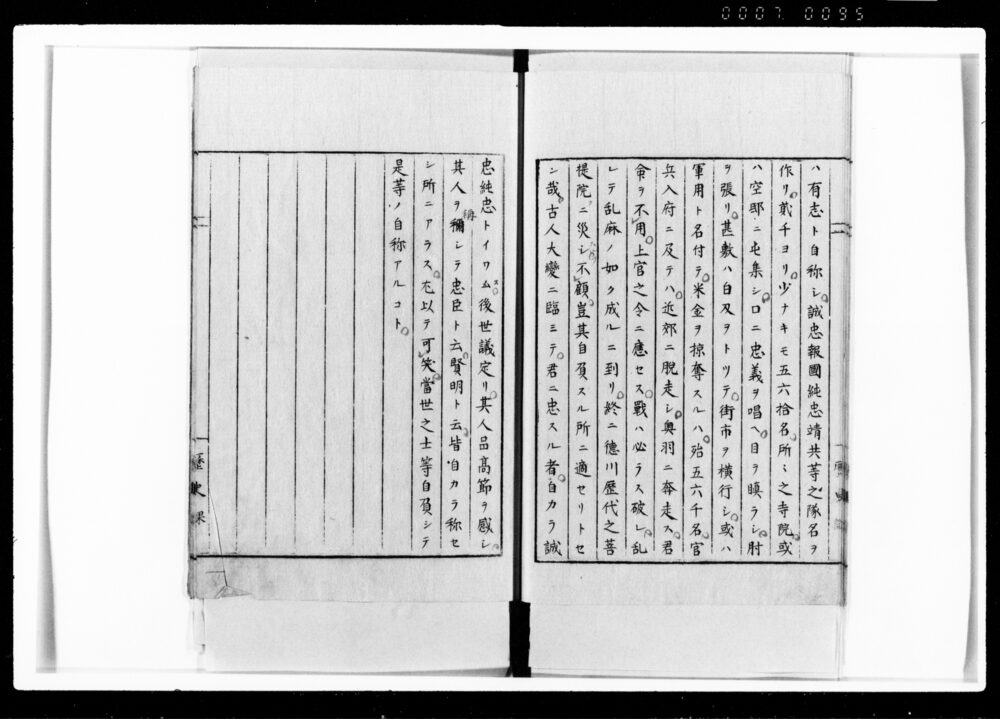 0007 0095
ハ有志ト自称シ。誠忠報國純忠靖共等之隊名ヲ
作リ。貳千ヨリ少ナキモ五六拾名。所〻之寺院。或
ハ空邸ニ屯集シ。口ニ忠義ヲ唱ヘ。目ヲ瞋ラシ。肘
ヲ張リ。甚敷ハ白刄ヲトツテ。街市ヲ横行シ。或ハ
軍用ト名付テ。米金ヲ掠奪スルハ。殆五六千名。官
兵入府ニ及テハ。近郊ニ脱走シ。奥羽ニ奔走ス。君
命ヲ不用。上官之令ニ應セス。戰ハ必ラス破レ。乱
レテ乱麻ノ如ク成ルニ到リ。終ニ德川歴代之菩
提院ニ災シ不顧。豈其自負スル所ニ適セリトセ
ン哉。古人大變ニ臨ミテ。君ニ忠スル者。自カラ誠
忠純忠トイワム。後世議定リ。其人品高節ヲ感シ
其人ヲ稱シテ忠臣ト云。賢明ト云。皆自カラ称セ
シ所ニアラス。尤以テ可笑。當世之士等自負シテ
是等ノ自称アルコト。
歴史課